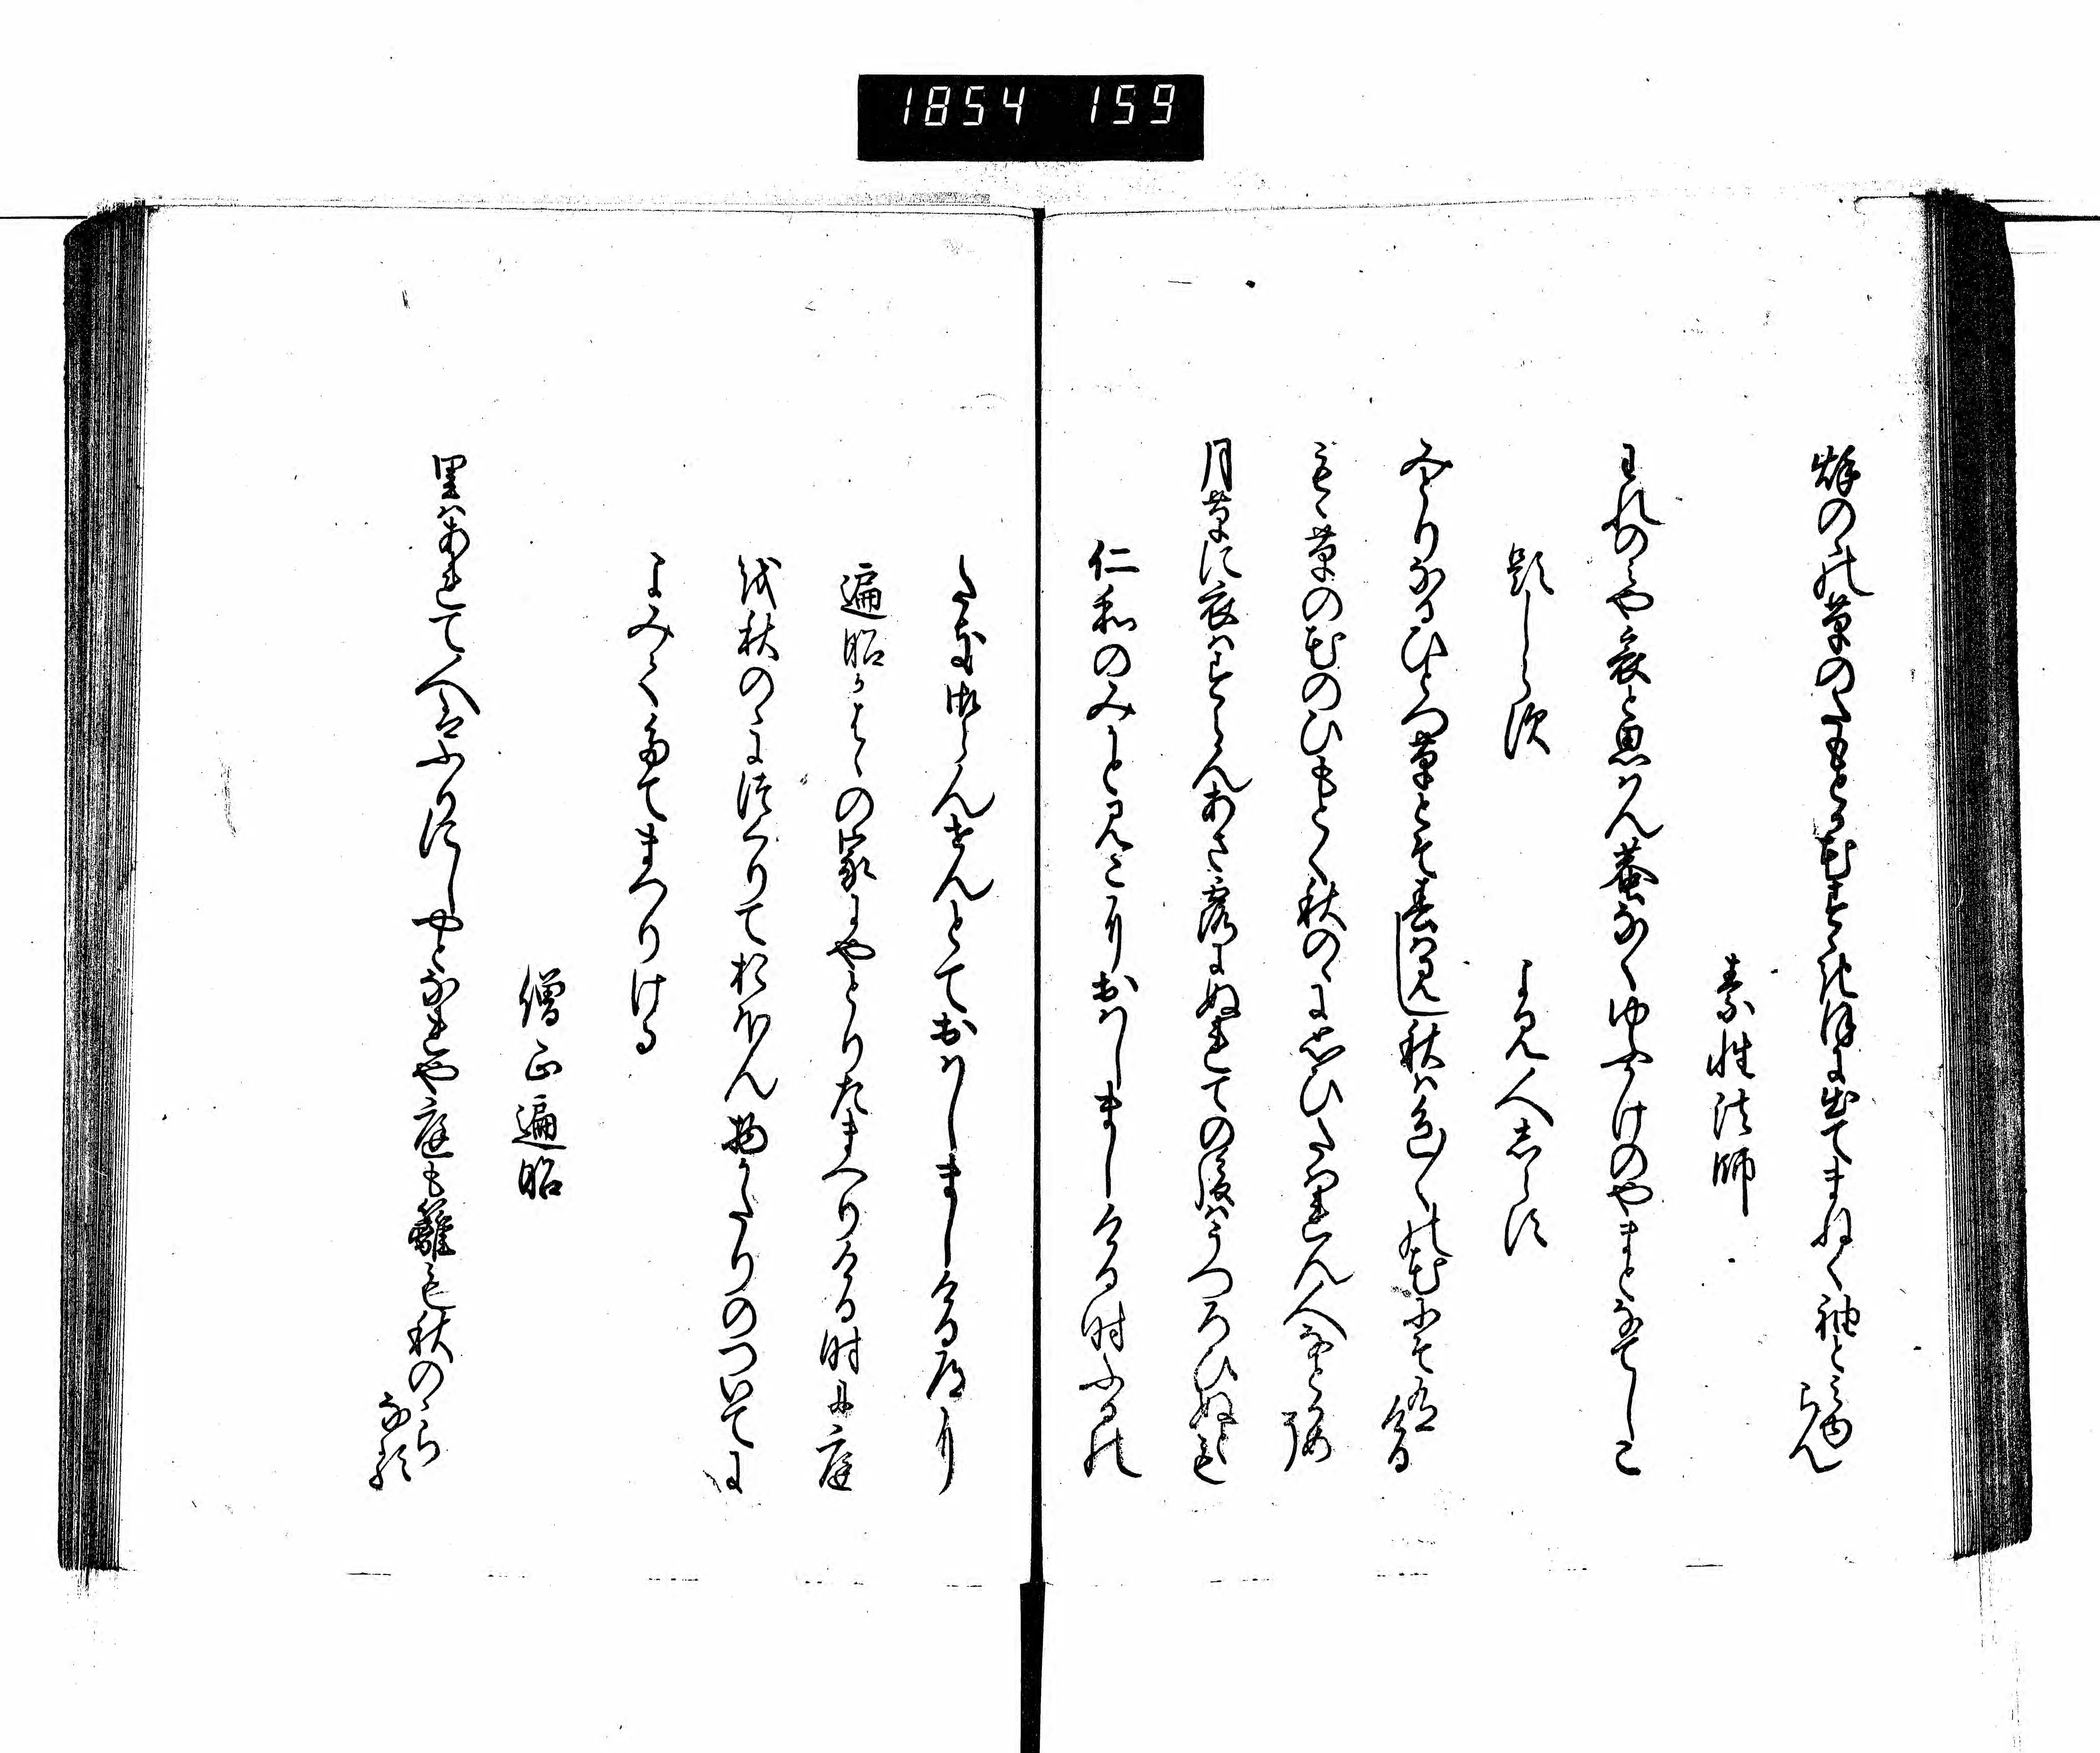 1854 159
秌のゝ草のたもとか花すゝきほに出てまねく袖とみゆらん
素性法師
われのみや哀と思はん蛬なくゆふかけのやまとなてしこ
題しらす　よみ人しらす
みとりなるひとつ草とそ春はみし秋は色〱の花にそ有ける
もゝ草の花のひもとく秋のゝに思ひたはれん人なとかめそ
月草に衣はすらんあさ露にぬれての後はうつろひぬとも
仁和のみかとみこにおはしましける時ふるの
たき御らんせんとておはしましける道に
遍昭かはゝの家にやとりたまへりける時に庭
を秋のゝにつくりておほん物かたりのついてに
よみてたてまつりける
僧正遍昭
里はあれて人はふりにしやとなれや庭も籬も秋のゝらなる